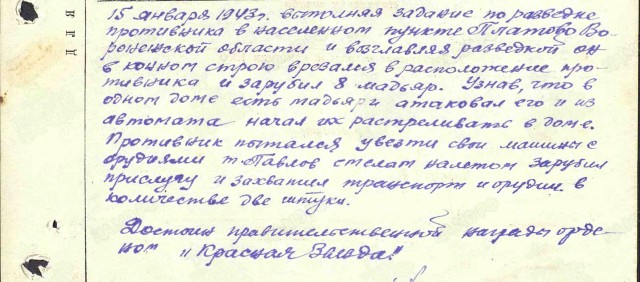 15 января 1943г. выполняя задание по разведке
противника в населенном пункте Платово Во-
ронежской области и возглавляя разведкой он
в конном строю врезался в расположение про-
тивника и зарубил 8 мадьяр. Узнав, что в
одном доме есть мадьяри атаковал его и из
автомата начал их растреливать в доме.
Противник пытался увезти свои машины с
орудиями т. Павлов смелым налетом зарубил
прислугу и захватил транспорт и орудии в
количестве две штуки.
Достоин правительственной награды орде-
ном "Красная Звезда"!